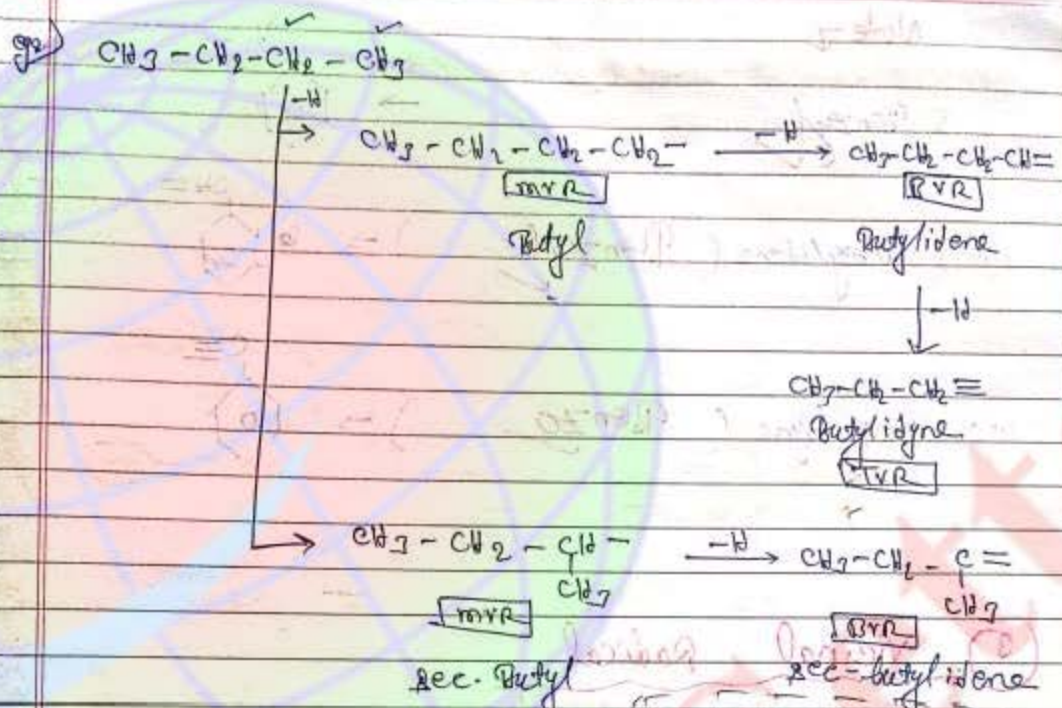 CH3 - CH2 - CH2 - CH3
-H
CH3 - CH2 - CH2 - CH2 - -H CH3-CH2-CH2-CH=
MVR BVR
Butyl Butylidene
-H
CH3-CH2-CH2≡
Butylidyne
TVR
CH3 - CH2 - CH - -H CH3-CH2 - C =
CH3 CH3
MVR BVR
sec. Butyl sec-butylidene